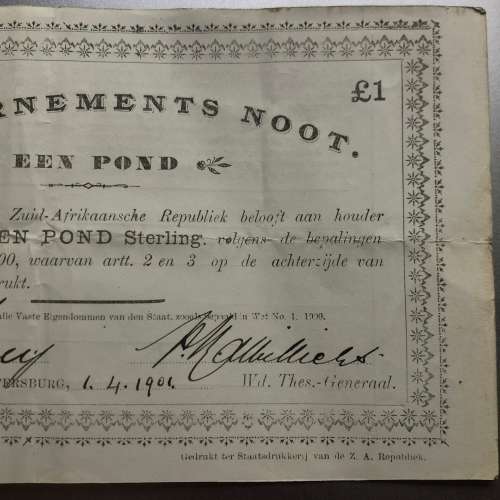 RNEMENTS NOOT.
£1
EEN POND
Zuid-Afrikaansche Republiek belooft aan houder
EN POND Sterling, volgens de bepalingen
00, waarvan artt. 2 en 3 op de achterzijde van
rukt.
alle Vaste Eigendommen van den Staat, zooals bepaald in Wet No. 1, 1900.
ERSBURG, 1.4.1901. Wd. Thes.-Generaal.
Gedrukt ter Staatsdrukkerij van de Z. A. Republiek.